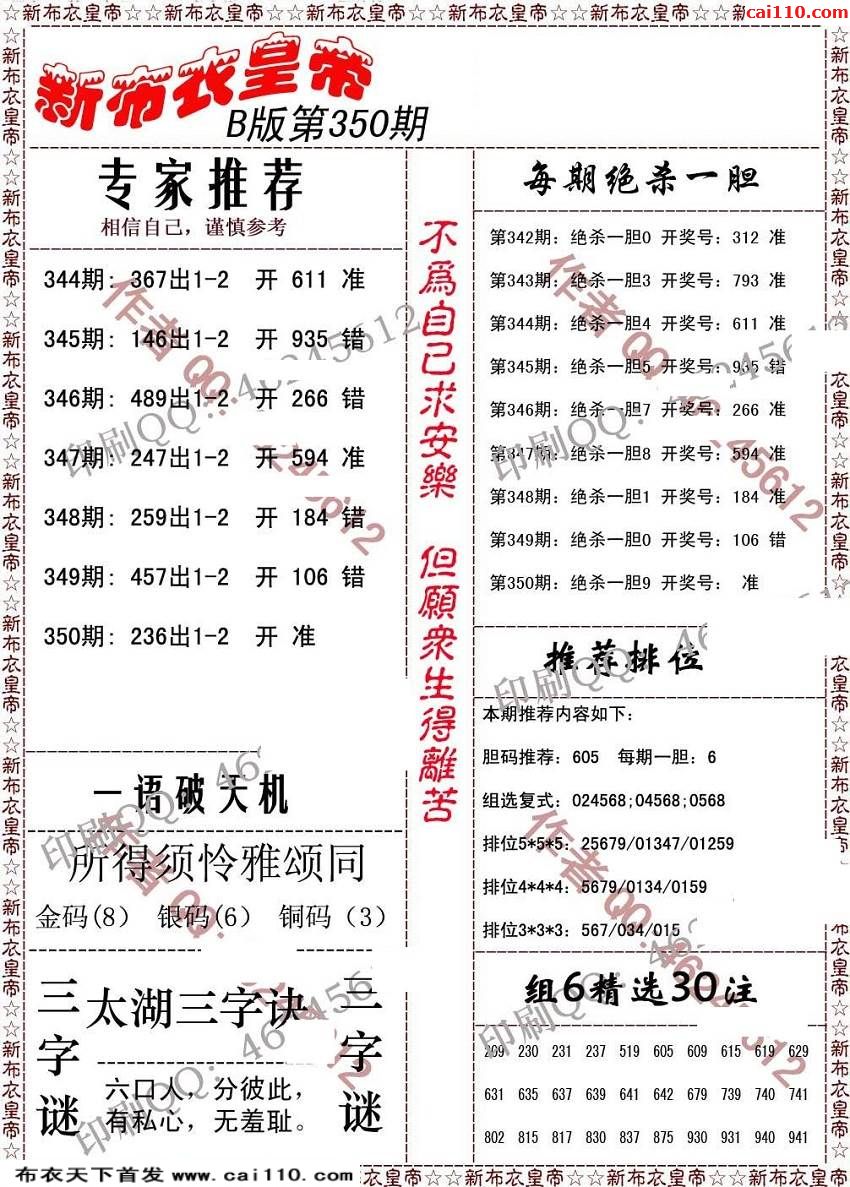 ☆☆新布衣皇帝☆☆新布衣皇帝☆☆新布衣皇帝☆☆新布衣皇帝☆☆新布衣皇帝☆☆
cai110.com
新布衣皇帝
B版第350期
专家推荐
相信自己，谨慎参考
344期: 367出1-2 开 611 准
345期: 146出1-2 开 935 错
346期: 489出1-2 开 266 错
347期: 247出1-2 开 594 准
348期: 259出1-2 开 184 错
349期: 457出1-2 开 106 错
350期: 236出1-2 开 准
一语破天机
所得须怜雅颂同
金码(8) 银码(6) 铜码(3)
三字谜
太湖三字诀
六口人，分彼此，
有私心，无羞耻。
三字谜
不爲自己求安樂 但願衆生得離苦
每期绝杀一胆
第342期: 绝杀一胆0 开奖号: 312 准
第343期: 绝杀一胆3 开奖号: 793 准
第344期: 绝杀一胆4 开奖号: 611 准
第345期: 绝杀一胆5 开奖号: 935 错
第346期: 绝杀一胆7 开奖号: 266 准
第347期: 绝杀一胆8 开奖号: 594 准
第348期: 绝杀一胆1 开奖号: 184 准
第349期: 绝杀一胆0 开奖号: 106 错
第350期: 绝杀一胆9 开奖号: 准
推荐排位
本期推荐内容如下:
胆码推荐: 605 每期一胆: 6
组选复式: 024568;04568;0568
排位5*5*5: 25679/01347/01259
排位4*4*4: 5679/0134/0159
排位3*3*3: 567/034/015
组6精选30注
209 230 231 237 519 605 609 615 619 629
631 635 637 639 641 642 679 739 740 741
802 815 817 830 837 875 930 931 940 941
布衣天下首发 www.cai110.com
新布衣皇帝☆☆新布衣皇帝☆☆新布衣皇帝☆☆新布衣皇帝☆☆